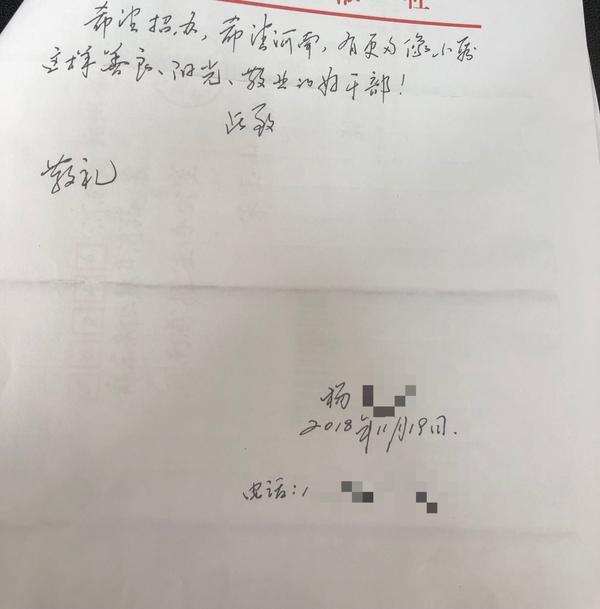 社
希望招办，希望河南，有更多像小
这样善良、阳光、敬业的好干部！
此致
敬礼
杨
2018年11月19日.
电话:1